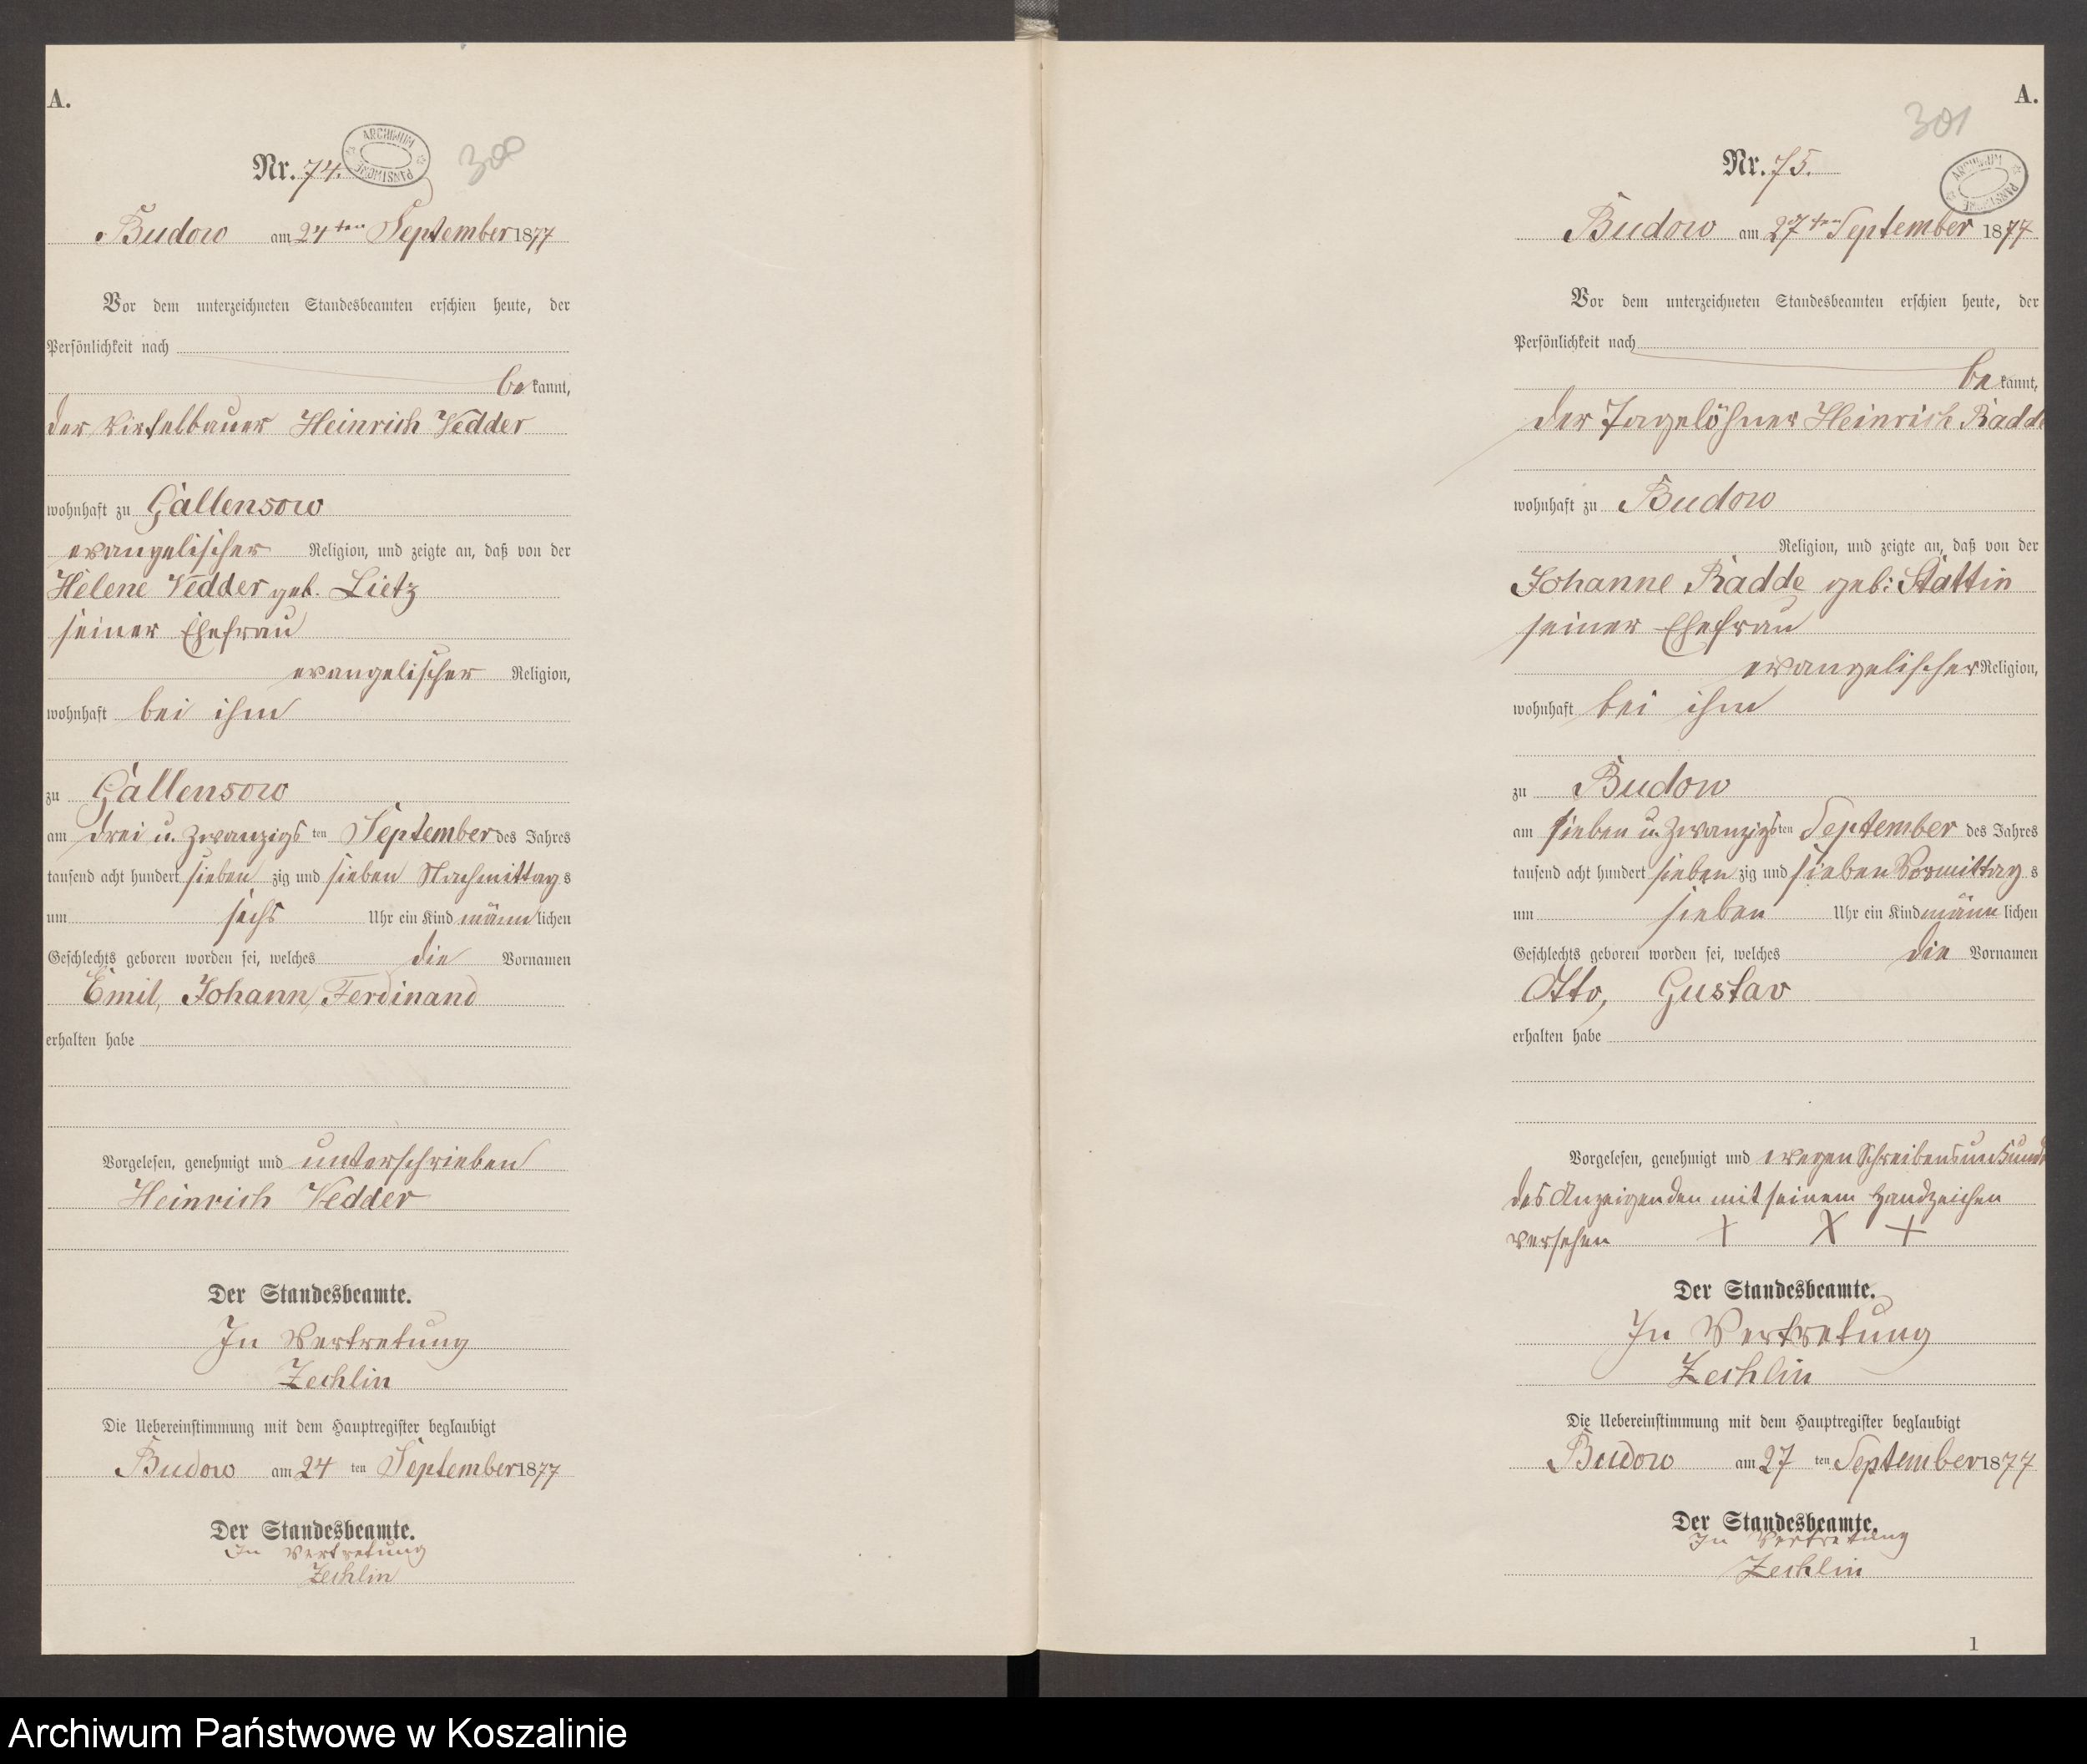 A.
ARCHIWUM PAŃSTWOWE
Nr. 74.
300
Budow am 24ten September 1877
Vor dem unterzeichneten Standesbeamten erschien heute, der
Persönlichkeit nach
bekannt,
der Viertelbauer Heinrich Vedder
wohnhaft zu Gallensow
evangelischer Religion, und zeigte an, daß von der
Helene Vedder geb. Lietz
seiner Ehefrau
evangelischer Religion,
wohnhaft bei ihm
zu Gallensow
am drei u. zwanzigsten September des Jahres
tausend acht hundert siebenzig und sieben Nachmittags
um sechs Uhr ein Kind männlichen
Geschlechts geboren worden sei, welches die Vornamen
Emil, Johann, Ferdinand
erhalten habe
Vorgelesen, genehmigt und unterschrieben
Heinrich Vedder
Der Standesbeamte.
In Vertretung
Zechlin
Die Uebereinstimmung mit dem Hauptregister beglaubigt
Budow am 24 ten September 1877
Der Standesbeamte.
In Vertretung
Zechlin
A.
301
ARCHIWUM PAŃSTWOWE
Nr. 75.
Budow am 27ten September 1877
Vor dem unterzeichneten Standesbeamten erschien heute, der
Persönlichkeit nach
bekannt,
der Tagelöhner Heinrich Radde
wohnhaft zu Budow
Religion, und zeigte an, daß von der
Johanne Radde geb: Stattin
seiner Ehefrau
evangelischer Religion,
wohnhaft bei ihm
zu Budow
am sieben u. zwanzigsten September des Jahres
tausend acht hundert siebenzig und sieben Vormittags
um sieben Uhr ein Kind männlichen
Geschlechts geboren worden sei, welches die Vornamen
Otto, Gustav
erhalten habe
Vorgelesen, genehmigt und wegen Schreibensunkunde
des Anzeigenden mit seinem Handzeichen
versehen + X +
Der Standesbeamte.
In Vertretung
Zechlin
Die Uebereinstimmung mit dem Hauptregister beglaubigt
Budow am 27 ten September 1877
Der Standesbeamte.
In Vertretung
Zechlin
1
Archiwum Państwowe w Koszalinie